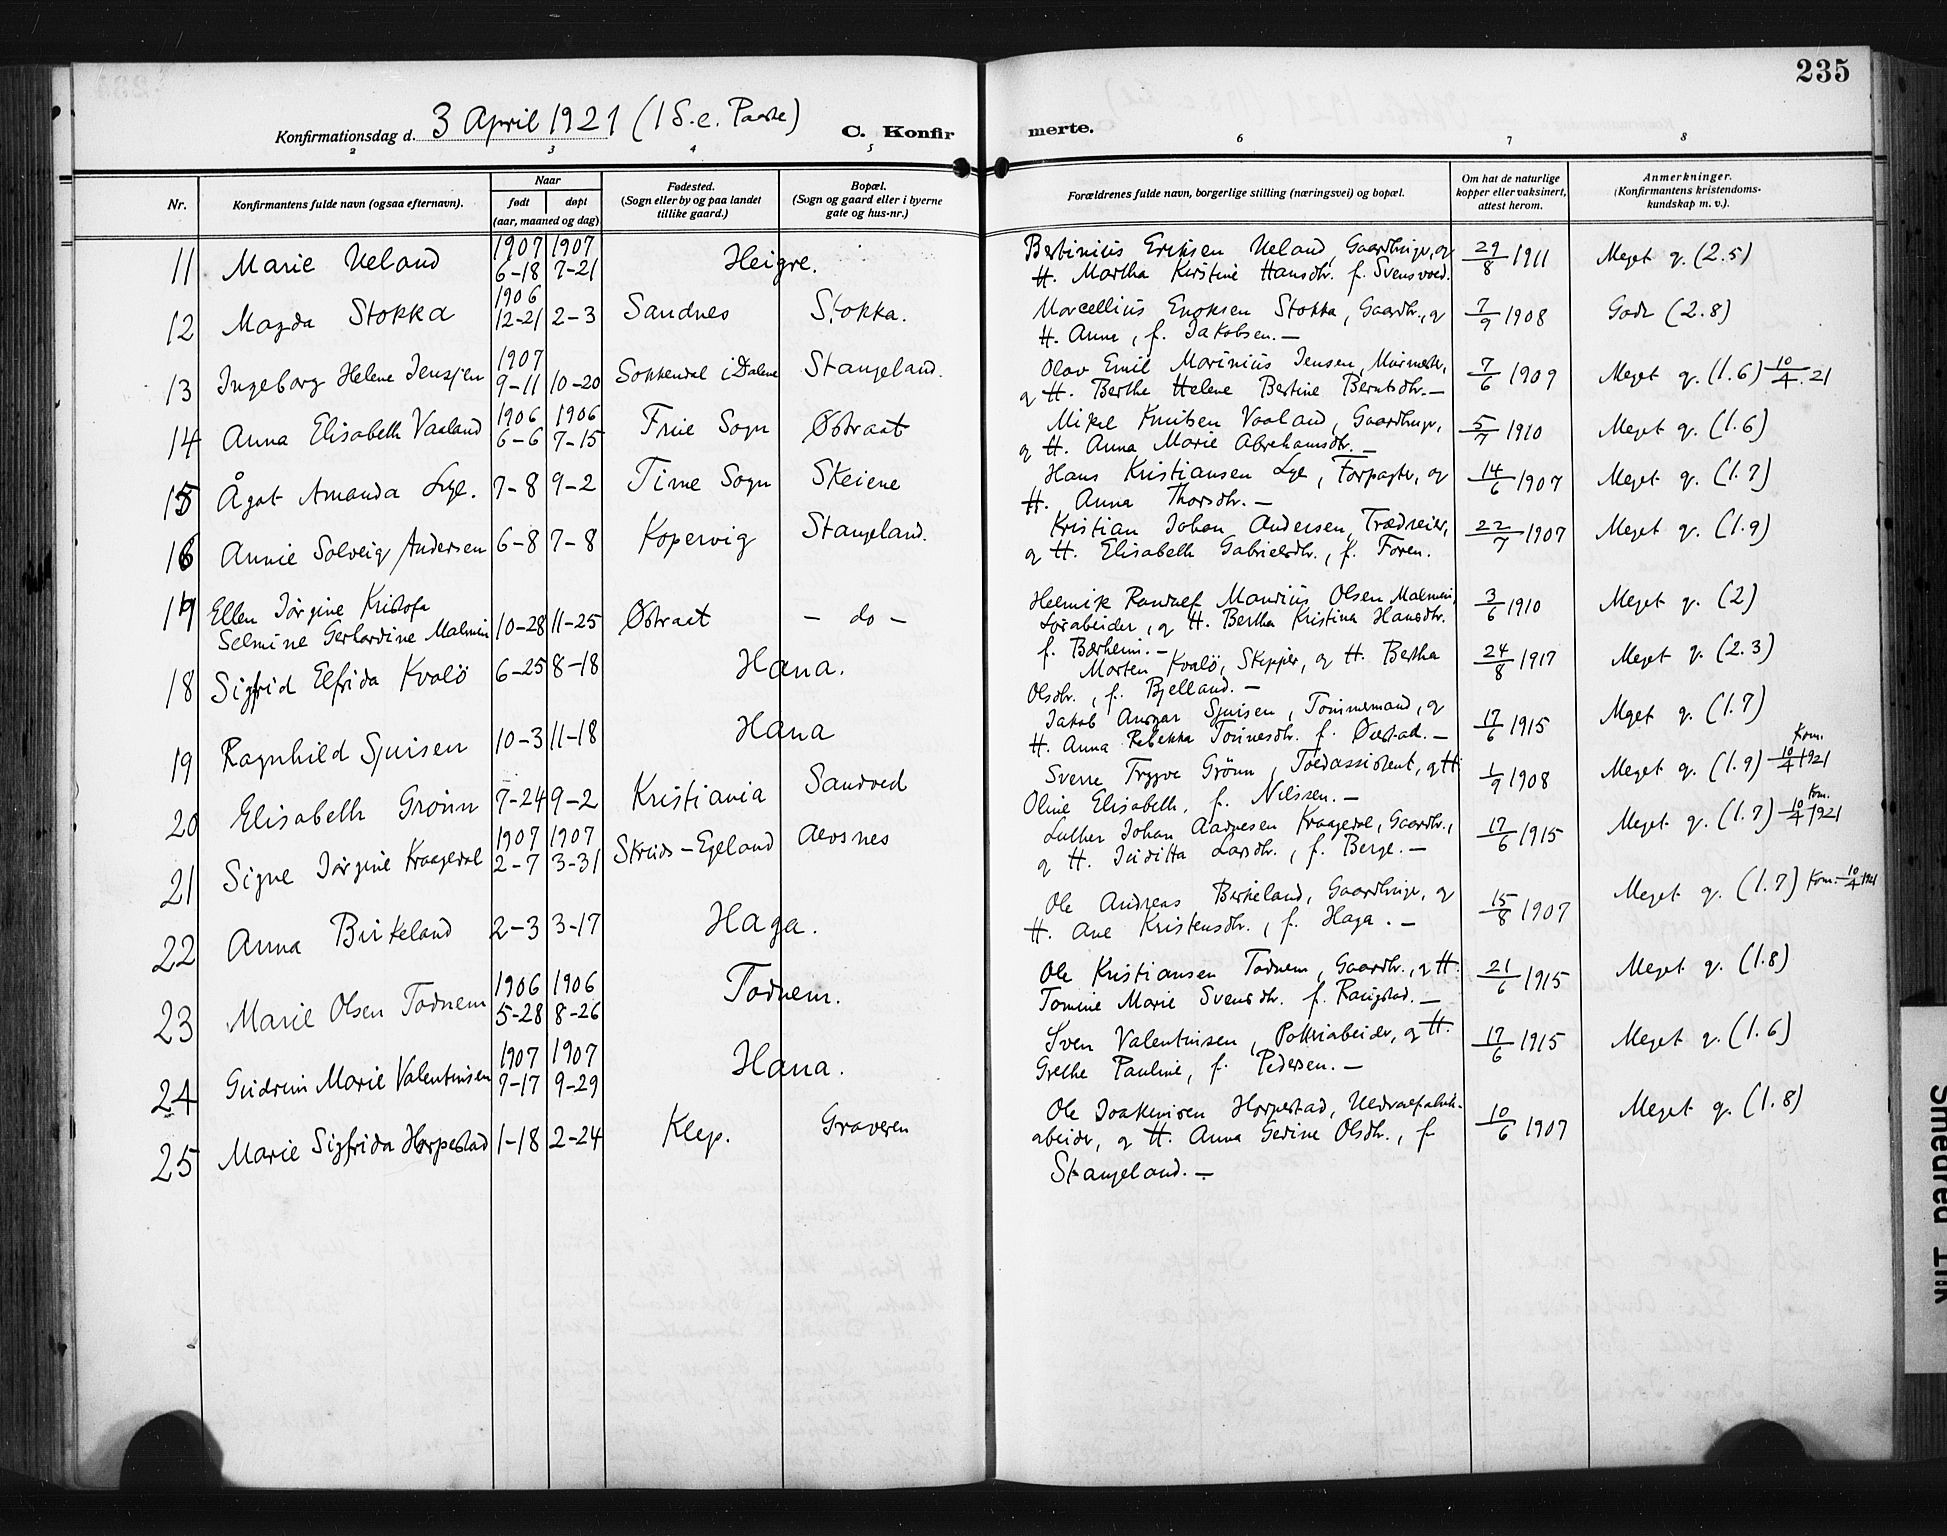 235
Konfirmationsdag d. 3 April 1921 (1 S. e. Paaske) C. Konfirmerte.
2 3 4 5 6 7 8
Nr. Konfirmantens fulde navn (ogsaa efternavn). Naar født døpt (aar, maaned og dag) Fødested. (Sogn eller by og paa landet tillike gaard.) Bopæl. (Sogn og gaard eller i byerne gate og hus-nr.) Forældrenes fulde navn, borgerlige stilling (næringsvei) og bopæl. Om hat de naturlige kopper eller vaksinert, attest herom. Anmerkninger. (Konfirmantens kristendomskundskap m. v.).
11 Marie Ueland 1907 6-18 1907 7-21 Heigre.
Bertinius Eriksen Ueland, Gaardbruger, og
H. Martha Kirstine Hansdtr. f. Svensvoed. 29/8 1911 Meget g. (2.5)
12 Magda Stokka 1906 12-21 2-3 Sandnes Stokka.
Marcellius Enoksen Stokka, Gaardbr., og
H. Anne, f. Jakobsen. — 7/9 1908 Godt (2.8)
13 Ingeborg Helene Jensen 1907 9-11 10-20 Sokkendal i Dalene Stangeland.
Olav Emil Marinius Jensen, Murmester,
og H. Berthe Helene Bertine Berntsdtr. — 7/6 1909 Meget g. (1.6) 10/4. 21
14 Anna Elisabeth Vaaland 1906 6-6 1906 7-15 Frue Sogn Østraat
Mikal Knutsen Vaaland, Gaardbruger,
og H. Anna Marie Abrahamsdtr. — 5/7 1910 Meget g. (1.6)
15 Ågot Amanda Lye. 7-8 9-2 Time Sogn Skeiene
Hans Kristiansen Lye, Forpagter, og
H. Anna Thorsdtr. — 14/6 1907 Meget g. (1.7)
16 Annie Solveig Andersen 6-8 7-8 Kopervig Stangeland.
Kristian Johan Andersen, Trædreier,
og H. Elisabeth Gabrielsdtr., f. Foren. 22/7 1907 Meget g. (1.9)
17 Ellen Jørgine Kristofa
Selmine Gerhardine Malmin 10-28 11-25 Østraat — do —
Helmik Randulf Mandius Olsen Malmin,
Lørabeider, og H. Bertha Kristina Hansdtr.
f. Bærheim. — 3/6 1910 Meget g. (2)
18 Sigfrid Elfrida Kvalö 6-25 8-18 Hana.
Morten Kvalö, Skipper, og H. Bertha
Olsdtr., f. Bjelland. — 24/8 1917 Meget g. (2.3)
19 Ragnhild Sjursen 10-3 11-18 Hana
Jakob Ansgar Sjursen, Tømmermand, og
H. Anna Rebekka Tönnesdtr. f. Øvstad. — 17/6 1915 Meget g. (1.7)
20 Elisabeth Grönn 7-24 9-2 Kristiania Sandved
Sverre Trygve Grönn, Toldassistent, og H.
Oline Elisabeth, f. Nilssen. — 1/9 1908 Meget g. (1.9) Kom. 10/4 1921
21 Signe Jörgine Kraagedal 1907 2-7 1907 3-31 Skeids-Egeland Aersnes
Luther Johan Aadnesen Kraagedal, Gaardbr.,
og H. Juditta Larsdtr., f. Berge. — 17/6 1915 Meget g. (1.7) Kom. 10/4 1921
22 Anna Birkeland 2-3 3-17 Haga.
Ole Andreas Berkeland, Gaardbruger, og
H. Ane Kristensdtr., f. Haga. — 15/8 1907 Meget g. (1.7) Kom. 10/4 1921
23 Marie Olsen Todnem 1906 5-28 1906 8-26 Todnem.
Ole Kristiansen Todnem, Gaardbr., og H.
Tomine Marie Svensdtr. f. Raugstad. — 21/6 1915 Meget g. (1.8)
24 Gudrun Marie Valentinsen 1907 7-17 1907 9-29 Hana.
Sven Valentinsen, Potteriabeider, og H.
Grethe Pauline, f. Pedersen. — 17/6 1915 Meget g. (1.6)
25 Marie Sigfrida Horpestad 1-18 2-24 Klep. Graveren
Ole Joakimsen Horpestad, Uldvarefabrik-
abeider, og H. Anna Gedine Olsdtr., f.
Stangeland. — 10/6 1907 Meget g. (1.8)